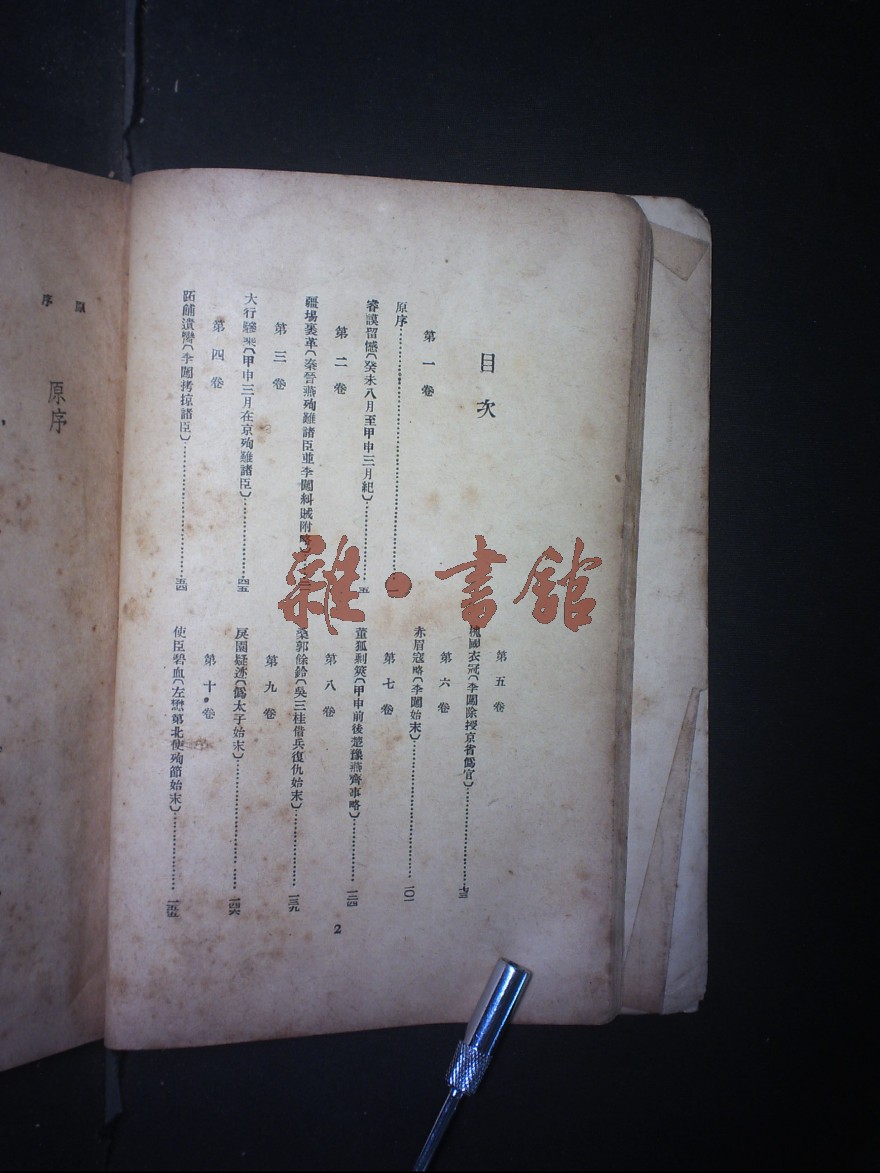 目次
原序……一
第一卷
睿謨留憾（癸未八月至甲申三月紀）……五
第二卷
疆場裹革（秦晉燕殉難諸臣並李闖糾賊附略）
第三卷
大行驂乘（甲申三月在京殉難諸臣）……四五
第四卷
跖餔遺臠（李闖拷掠諸臣）……五四
第五卷
槐國衣冠（李闖除授京省僞官）……七三
第六卷
赤眉寇略（李闖始末）……一〇一
第七卷
董狐剩筴（甲申前後楚豫燕齊事略）……一二四
第八卷
桑郭餘鈴（吳三桂借兵復仇始末）……一三九
第九卷
戾園疑迹（僞太子始末）……一四六
第十卷
使臣碧血（左懋第北使殉節始末）……一五五
2
原序
原序
雜·書館